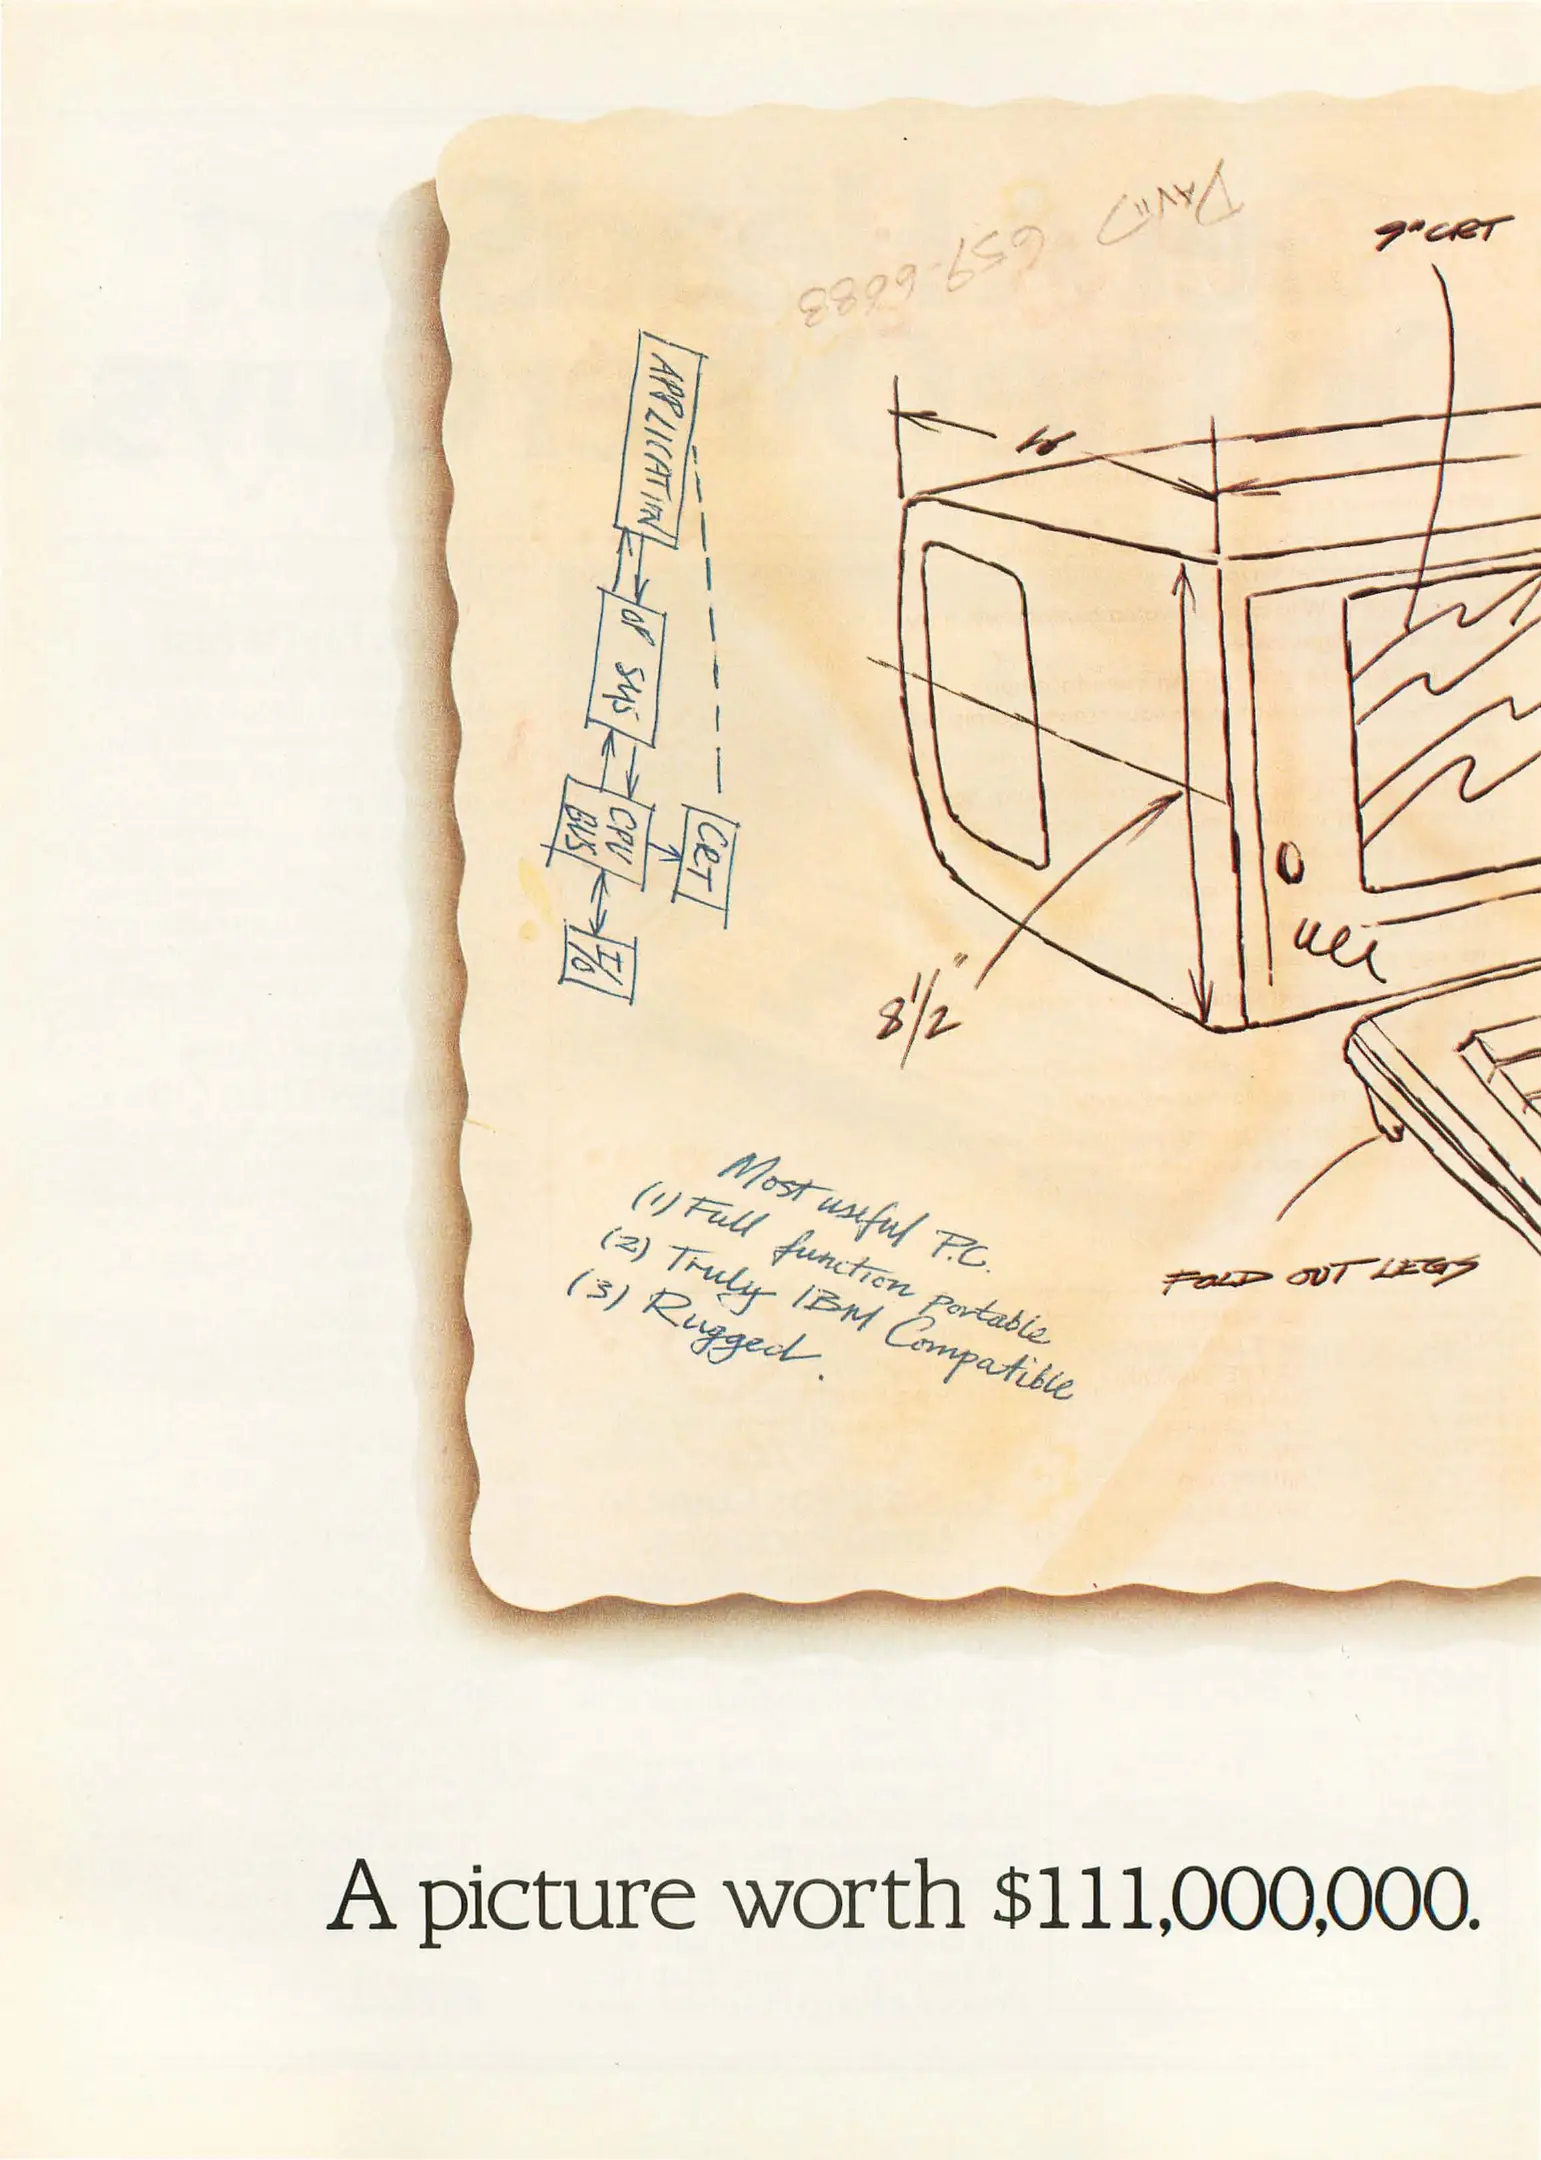 DAVID
659-6683
9" CRT
APPLICATIN
OP SYS
CPU
BUS
CRT
I/O
8 1/2"
Most useful P.C.
(1) Full function portable
(2) Truly IBM Compatible
(3) Rugged.
FOLD OUT LEGS
A picture worth $111,000,000.